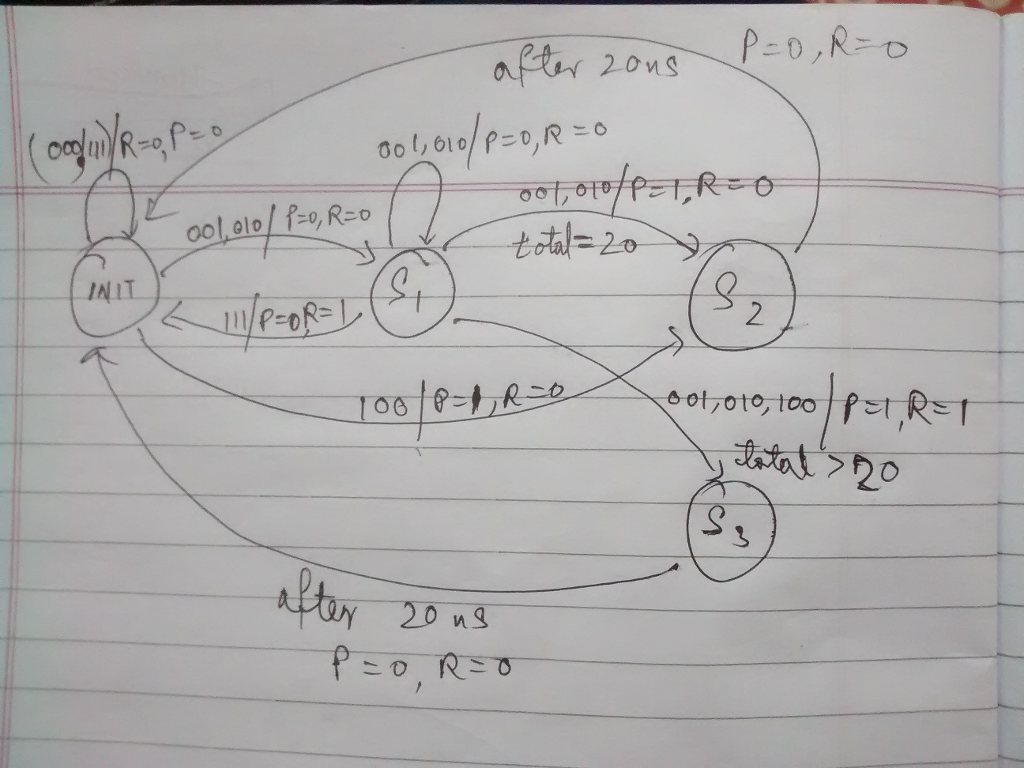 after 20ns
P=0, R=0
(000,111)/R=0, P=0
001,010/P=0, R=0
001,010/P=1, R=0
total=20
001,010/P=0, R=0
INIT
S1
S2
111/P=0, R=1
100/P=1, R=0
001,010,100/P=1, R=1
total >20
S3
after 20ns
P=0, R=0